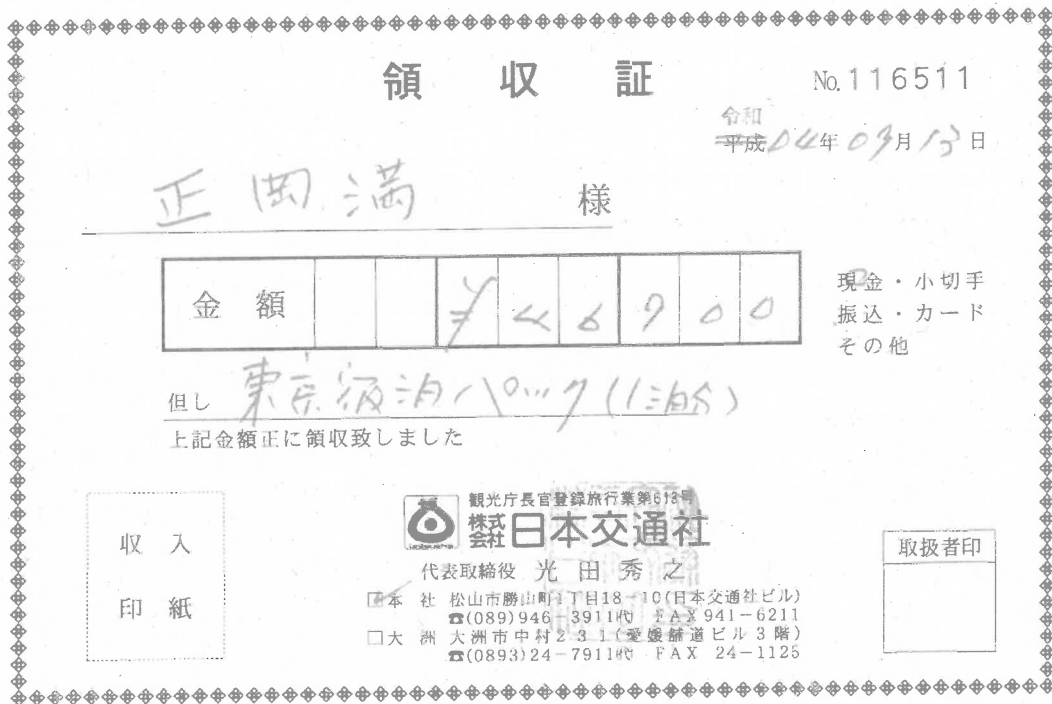 領収証
No.116511
令和
平成04年07月13日
正岡満 様
金額 ¥46700
現金・小切手
振込・カード
その他
但し 東京宿泊パック(1泊分)
上記金額正に領収致しました
収入
印紙
観光庁長官登録旅行業第613号
株式会社日本交通社
代表取締役 光田秀之
□本社 松山市勝山町1丁目18-10(日本交通社ビル)
☎(089)946-3911代 FAX 941-6211
□大洲 大洲市中村231(愛媛舗道ビル3階)
☎(0893)24-7911代 FAX 24-1125
取扱者印